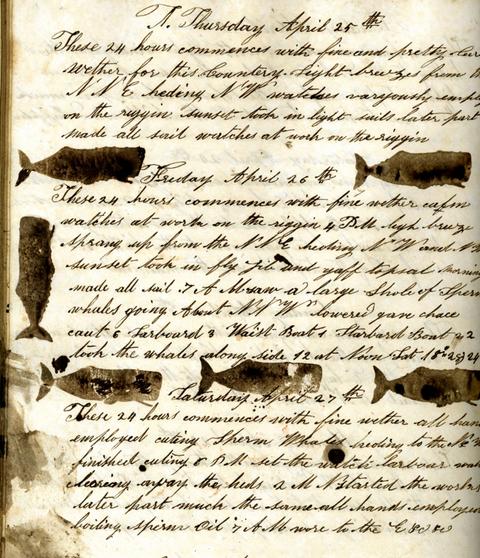 Thursday April 25th
These 24 hours commences with fine and pretty
wether for this Countery light brezes from
N N E heding N W watches varyously
on the riggin sunset took in light sails later part
made all sail watches at work on the riggin
Friday April 26th
These 24 hours commences with fine wether calm
watches at work on the riggin 4 PM ligh breze
Sprang up from the N E heding N W and
sunset took in fly jib and gaff topsal morning
made all sail 7 A M saw a large Shole of Sperm
whales going About N N W lowered gave chace
caut 6 Larboard 3 Waist Boat 1 Starbard Boat 2
took the whales along side 12 at Noon Lat
Saturday April 27th
These 24 hours commences with fine wether all
employed cuting Sperm Whales heding to the
finished cuting 8 P M set the watch larbour
Clearing away the heds 2 M N started the works
later part much the same all hands employed
boiling sperm Oil 7 A M wore to the E